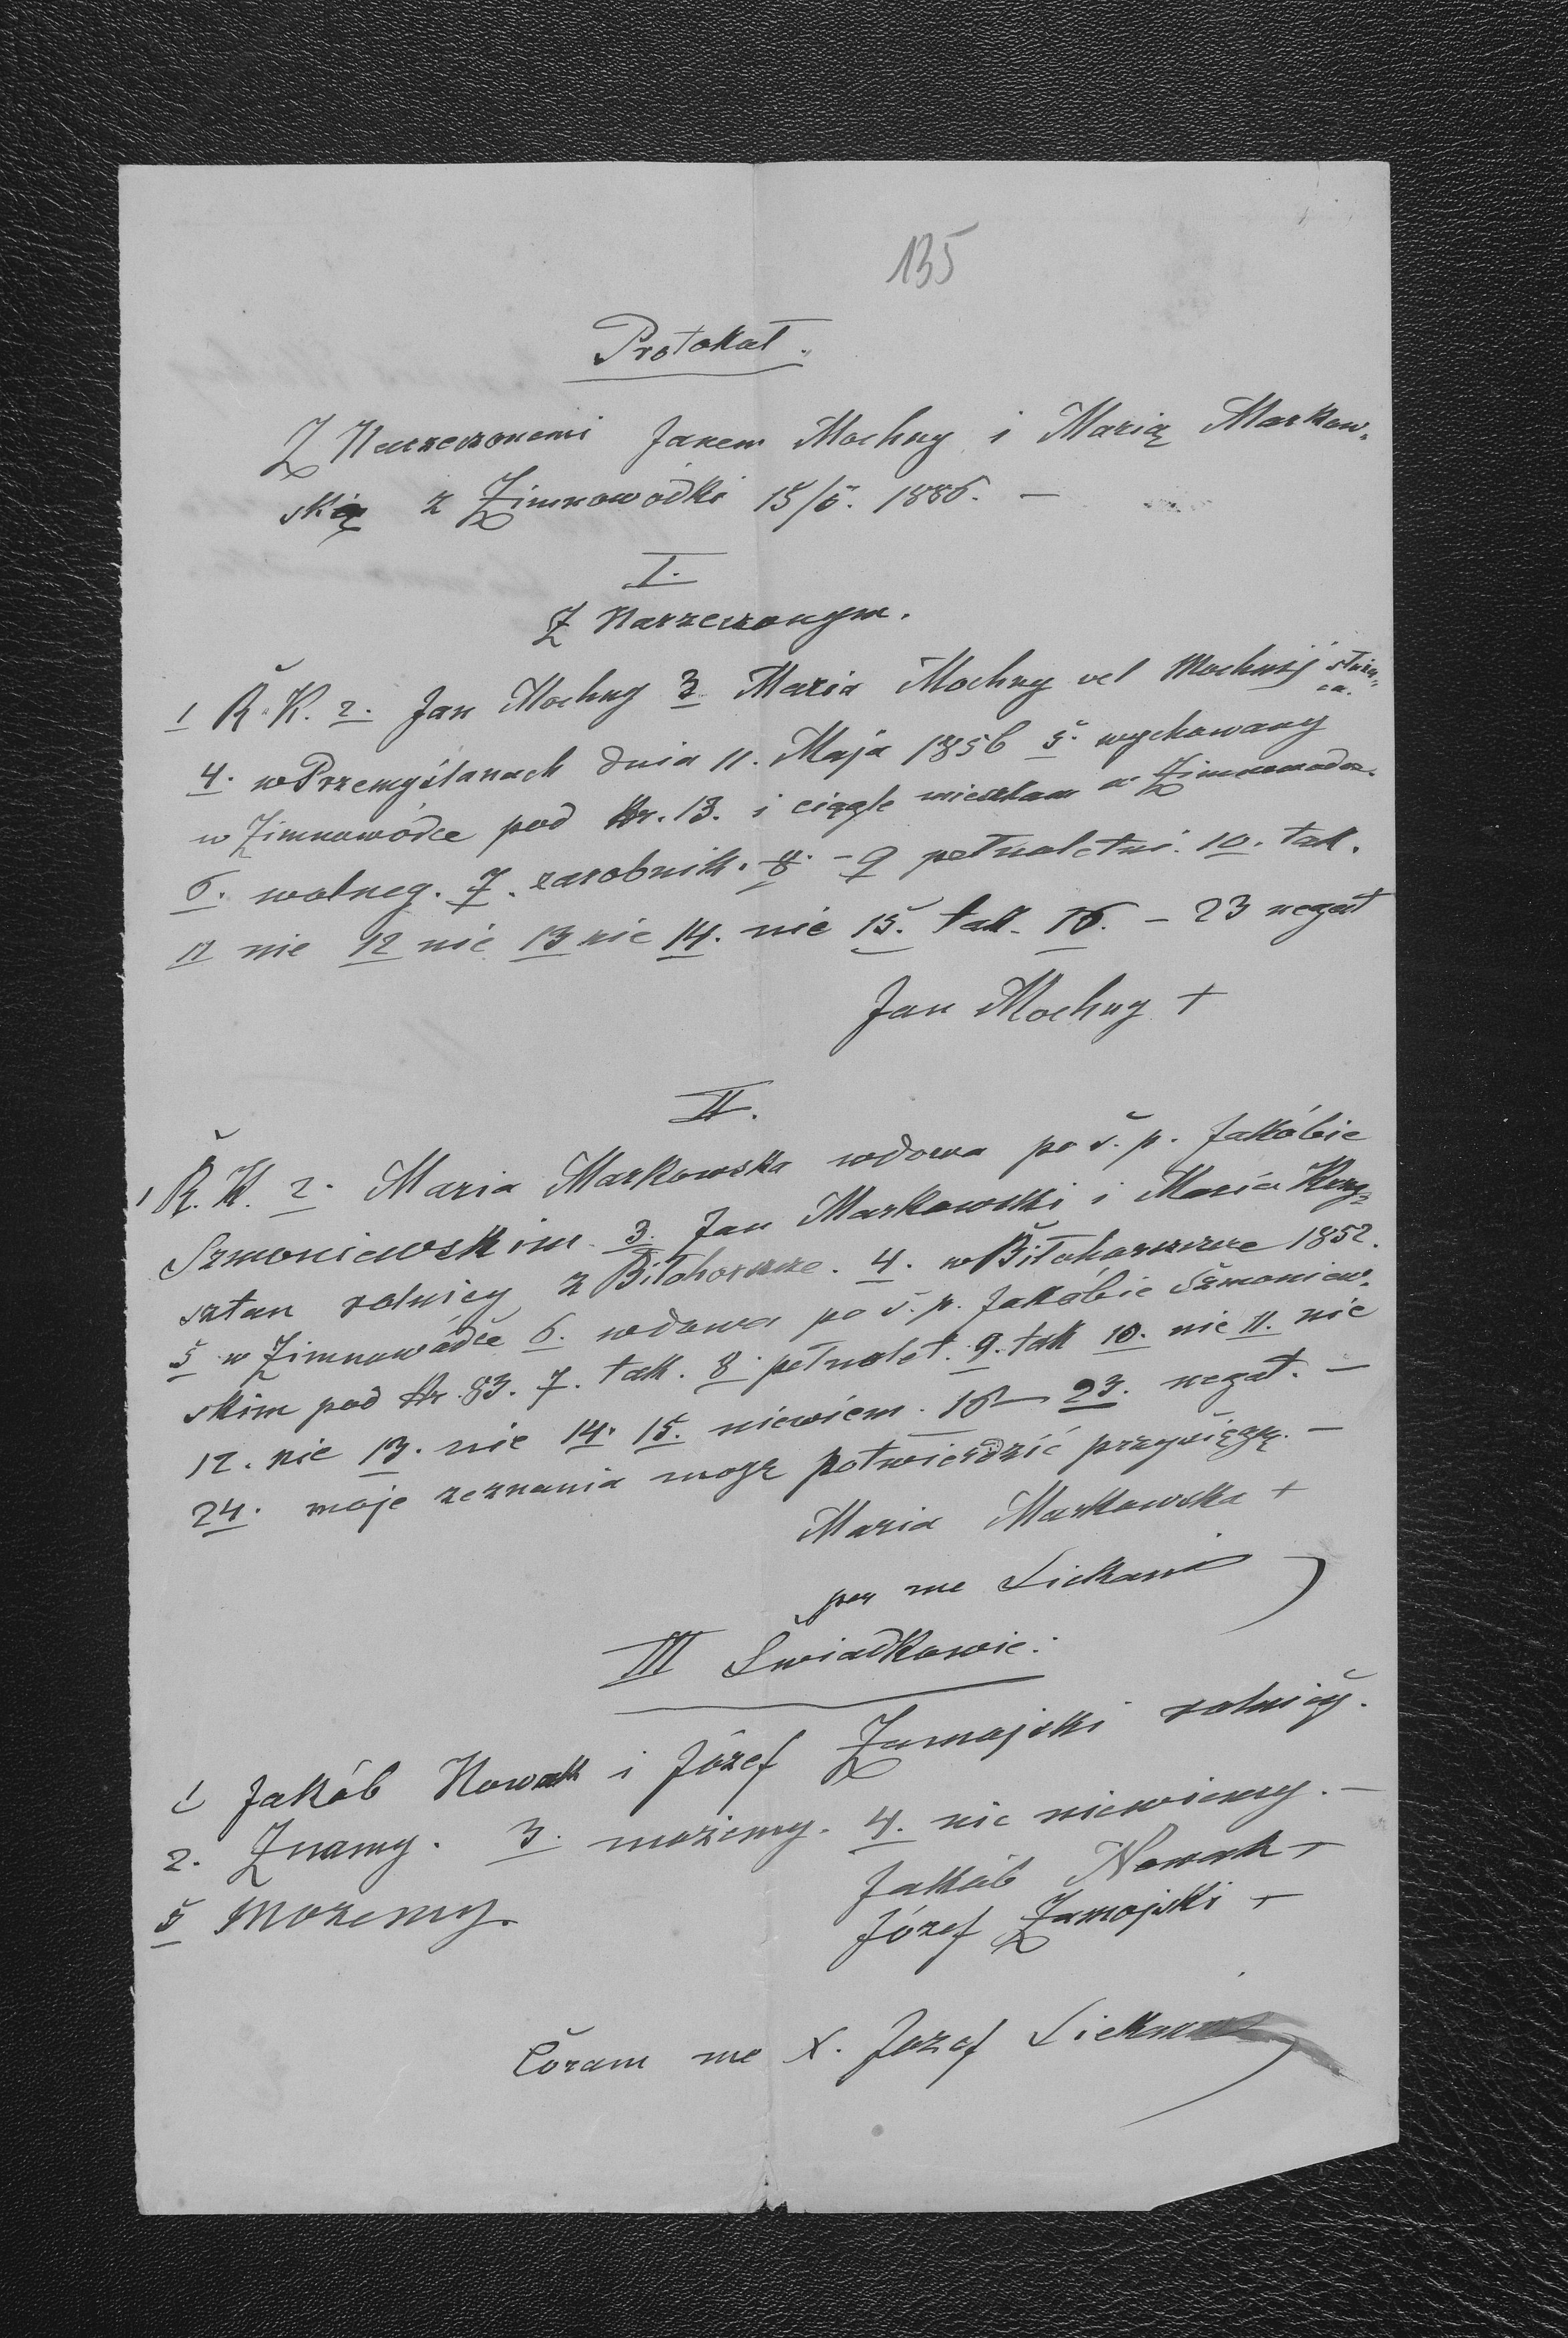 135
Protokół.
Z Narzeczonemi Janem Mochny i Marią Markow-
ską z Zimnowódki 15/5. 1886. —
I.
Z Narzeczonym.
1 R. K. 2. Jan Mochny 3 Maria Mochny vel Mochnij służą-
ca.
4. w Przemyślanach dnia 11. Maja 1856 5. wychowany
w Zimnowódce pod Nr. 13. i ciągle mieszkam w Zimnowódce.
6. wolny. 7. zarobnik. 8. – 9 pełnoletni. 10. tak.
11 nie 12 nie 13 nie 14. nie 15. tak. 16. – 23 negat
Jan Mochny +
II.
1 R. K. 2. Maria Markowska wdowa po ś. p. Jakóbie
Szmoniewskim. 3. Jan Markowski i Maria Krzy-
sztan rolnicy z Biłohorszcze. 4. w Biłohorszcze 1852.
5 w Zimnowódce 6. wdowa po ś. p. Jakóbie Szmoniew-
skim pod Nr. 83. 7. tak. 8. pełnolet. 9. tak 10. nie 11. nie
12. nie 13. nie 14. 15. niewiem. 16 — 23. negat. —
24. moje zeznania mogę potwierdzić przysięgą. —
Maria Markowska +
per me
III Świadkowie:
1 Jakób Nowak i Józef Zamojski rolnicy.
2. Znamy. 3. możemy. 4. nic niewiemy. —
5 Możemy.
Jakób Nowak +
Józef Zamojski +
Coram me X. Jozef